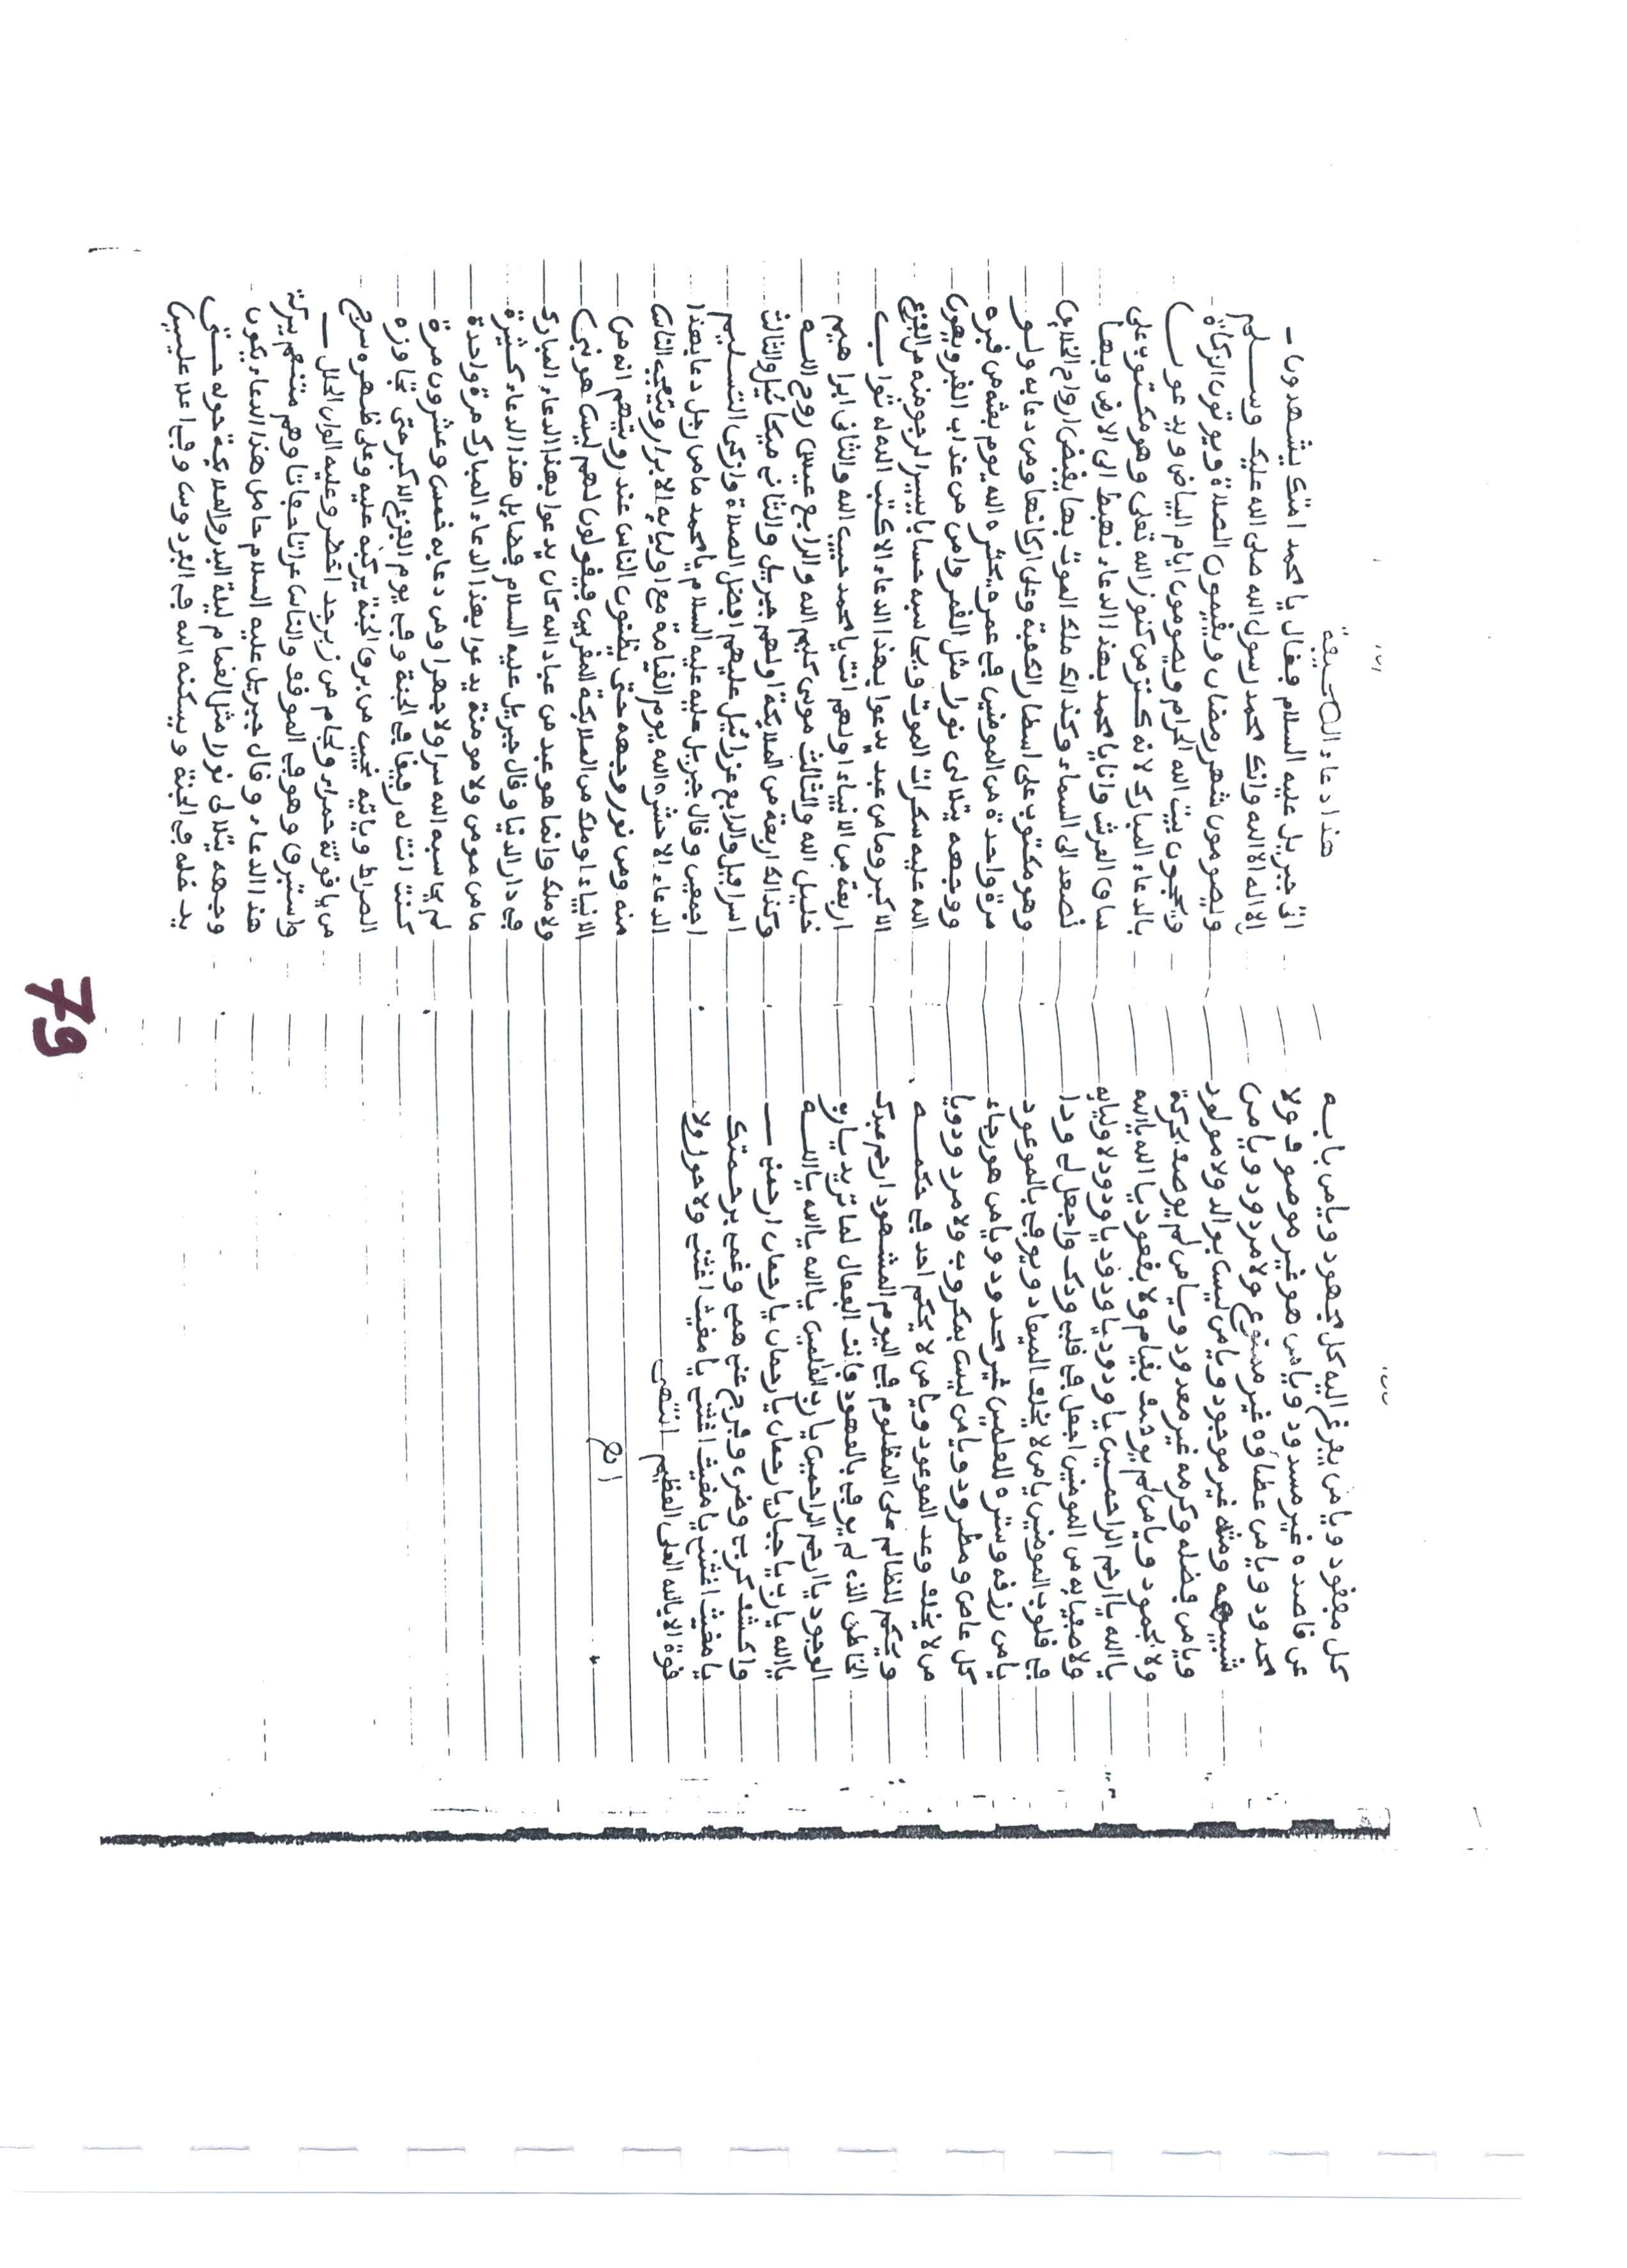 كل مفقود ويا من يفزع اليه كل مجهود ويا من بابه
عن قاصده غير مسدود ويا من هو غير موصوف ولا
محدود ويا من عطاؤه غير ممنوع ولا مردود ويا من
شبيهه ومثله غير موجود ويا من ليس بوالد ولا مولود
ويا من فضله وكرمه غير معدود ويا من لم يوصف بحركة
ولا بجمود ويا من لم يوصف بقيام ولا بقعود يا الله يا الله
يا الله يا ارحم الراحمين يا ودود يا ودود يا ودود لاوليايه
ولاصفيايه من المومنين اجعل في قلبي ودك واجعل لي ودا
في قلوب المومنين يا من لا يخلف الميعاد ويوفي بالموعود
يا من رزقه وستره للعلمين غير محدود ويا من هو رجاء
كل عاص ومطرود ويا من ليس بمكروب ولا مردود ويا
من لا يخلف وعد الموعود ويا من لا يحكم احد في حكمه
ويحكم للظالم على المظلوم في اليوم المشهود ارحم عبدك
الخاطئ الذي لم يوف بالعهود فانت الفعال لما تريد يا رب
الوجود يا ارحم الراحمين يا رب العلمين يا الله يا الله يا الله
يا الله يا رب يا جبار يا رحمان يا رحمان يا رحمان ارحمني
واكشف كربي وضري وفرج عني همي وغمي برحمتك
يا مغيث اغثني يا مغيث اغثني يا مغيث اغثني ولا حول ولا
قوة الا بالله العلى العظيم انتهى
هذا دعاء الصحيفة
اتى جبريل عليه السلام فقال يا محمد امتك يشهدون
الا اله الا الله وانك محمد رسول الله صلى الله عليك وسلم
ويصومون شهر رمضان ويقيمون الصلاة ويوتون الزكاة
ويحجون بيت الله الحرام ويصومون ايام البياض ويدعون
بالدعاء المبارك لانه كنز من كنوز الله تعلى وهو مكتوب على
ساق العرش وانا يا محمد بهذا الدعاء نهبط الى الارض وبها
نصعد الى السماء وكذالك ملك الموت بها يقبض ارواح الخلايق
وهو مكتوب على اسطار الكعبة وعلى اركانها ومن دعا به ولو
مرة واحدة من المومنين في عمره يحشره الله يوم بعثه من قبره
ووجهه يتلالى نورا مثل القمر وامن من عذاب القبر ويهون
الله عليه سكرات الموت ويحاسبه حسابا يسيرا لرجومنه من الفزع
الاكبر وما من عبد يدعوا بهذا الدعاء الا كتب الله له ثواب
اربعة من الانبياء اولهم انت يا محمد حبيب الله والثانى ابراهيم
خليل الله والثالث موسى كليم الله والرابع عيسى روح الله
وكذالك اربعة من الملايكة اولهم جبريل والثاني ميكائيل والثالث
اسرافيل والرابع عزرائيل عليهم افضل الصلاة وازكى التسليم
اجمعين وقال جبريل عليه عليه السلام يا محمد ما من رجل دعا بهذا
الدعاء الا حشره الله يوم القيامة مع اوليايه الابرار ويتعجب الناس
منه ومن نور وجهه حتى يظنون الناس عند رويتهم انه من
الانبياء او ملك من الملايكة المقربين فيقولون لهم ليس هو نبي
ولا ملك وانما هو عبد من عباد الله كان يدعوا بهذا الدعاء المبارك
في دار الدنيا وقال جبريل عليه السلام فضايل هذا الدعاء كثيرة
ما من مومن ولا مومنة يدعوا بهذا الدعاء المبارك مرة واحدة
لم يحاسبه الله سرا ولا جهرا ومن دعا به خمس وعشرون مرة
كنت انت له رفيقا في الجنة وفي يوم الفزع الاكبر حتى تجاوزه
الصراط وياتيه نجيب من برق الجنة يركبه عليه وعلى ظهره سرج
من ياقوتة حمراء ولجام من زبرجد اخضر وعليه الوان الحلل
واستبرق وهو في الموقف والناس عراتا حفاتا وهم متنعم ببركة
هذا الدعاء وقال جبريل عليه السلام حامل هذا الدعاء يكون
وجهه يتلالى نورا مثل القمام ليلة البدر والملايكة حوله حتى
يدخله في الجنة ويسكنه الله في الفردوس وفي اعلا عليين
79